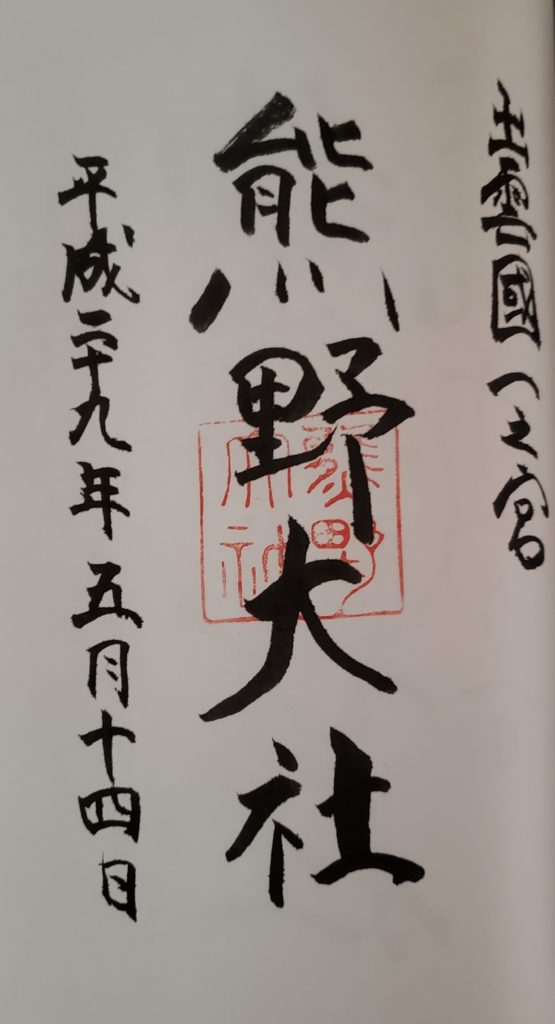 出雲國一之宮
熊野大社
熊野大社
平成二十九年五月十四日